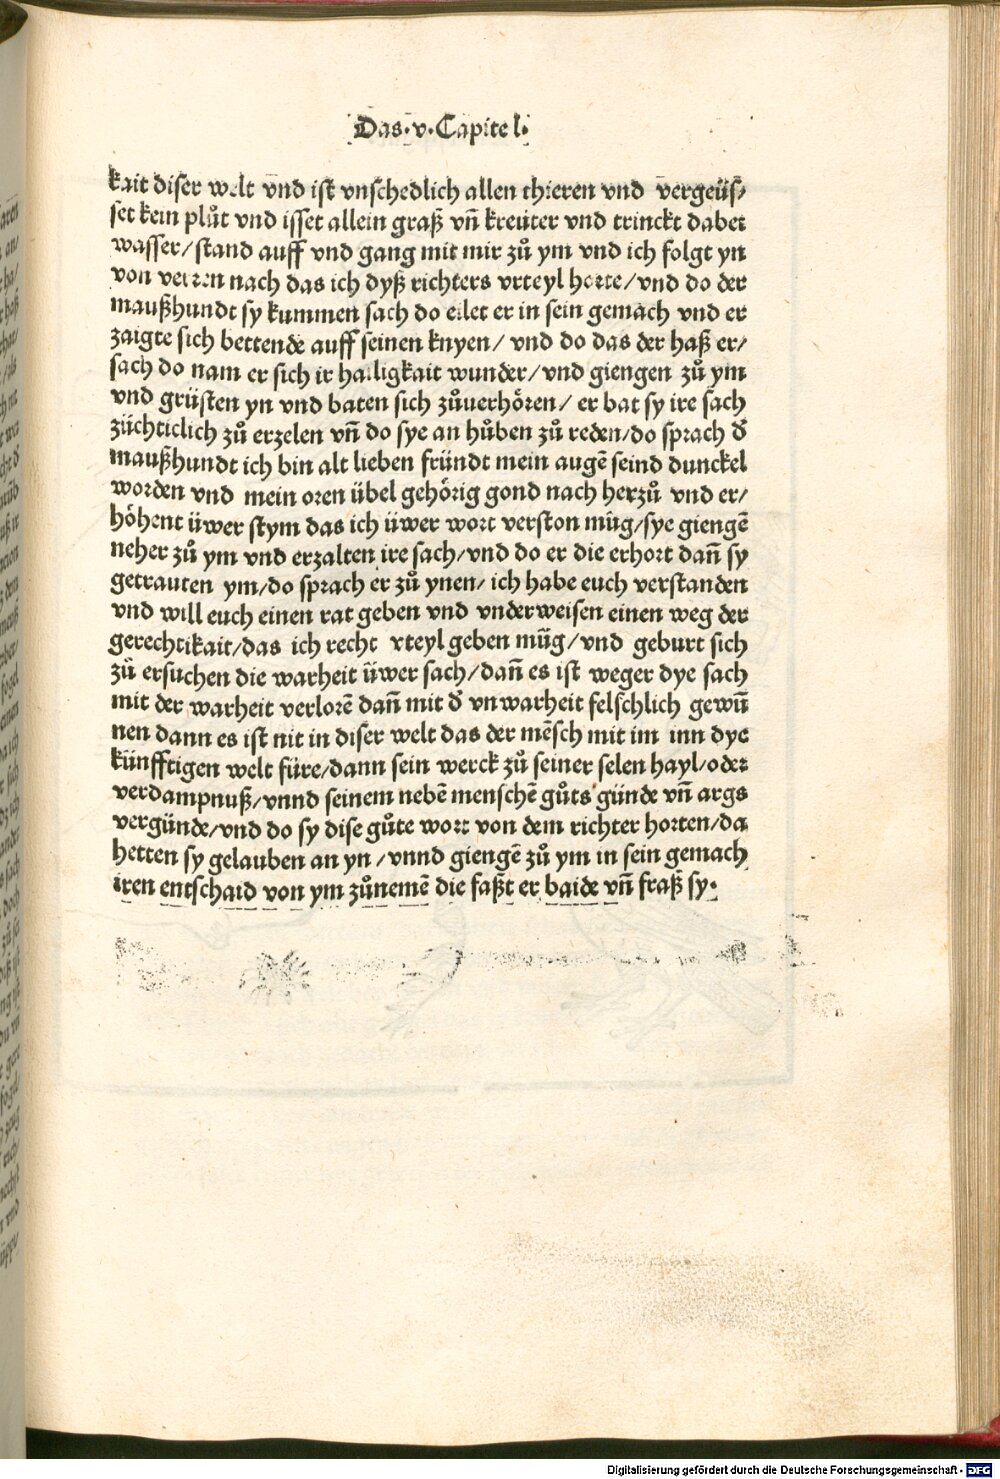 Das·v·Capitel·
kait diser welt vnd ist vnschedlich allen thieren vnd vergeüs/
set kein plůt vnd isset allein graß vñ kreüter vnd trinckt dabei
wasser/stand auff vnd gang mit mir zů ym vnd ich folgt yn
von verren nach das ich dyß richters vrteyl horte/vnd do der
maußhundt sy kummen sach do eilet er in sein gemach vnd er
zaigte sich bettende auff seinen knyen/ vnd do das der haß er/
sach do nam er sich ir hailigkait wunder/vnd giengen zů ym
vnd grüsten yn vnd baten sich zůuerhören/ er bat sy ire sach
züchticlich zů erzelen vñ do sye an hůben zů reden/do sprach d̕
maußhundt ich bin alt lieben fründt mein augē seind dunckel
worden vnd mein oren übel gehörig gond nach herzů vnd er/
höhent üwer stym das ich üwer wort verston müg/sye giengē
neher zů ym vnd erzalten ire sach/vnd do er die erhort dañ sy
getrauten ym/do sprach er zů ynen/ ich habe euch verstanden
vnd will euch einen rat geben vnd vnderweisen einen weg der
gerechtikait/das ich recht vrteyl geben müg/vnd geburt sich
zů ersuchen die warheit üwer sach/dañ es ist weger dye sach
mit der warheit verlorē dañ mit d̕ vnwarheit felschlich gewū
nen dann es ist nit in diser welt das der mēsch mit im inn dye
künfftigen welt füre/dann sein werck zů seiner selen hayl/oder
verdampnuß/vnnd seinem nebē menschē gůts günde vñ args
vergünde/vnd do sy dise gůte wort von dem richter horten/da
hetten sy gelauben an yn/vnnd giengē zů ym in sein gemach
iren entschaid von ym zůnemē die faßt er baide vñ fraß sy·
Digitalisierung gefördert durch die Deutsche Forschungsgemeinschaft - DFG